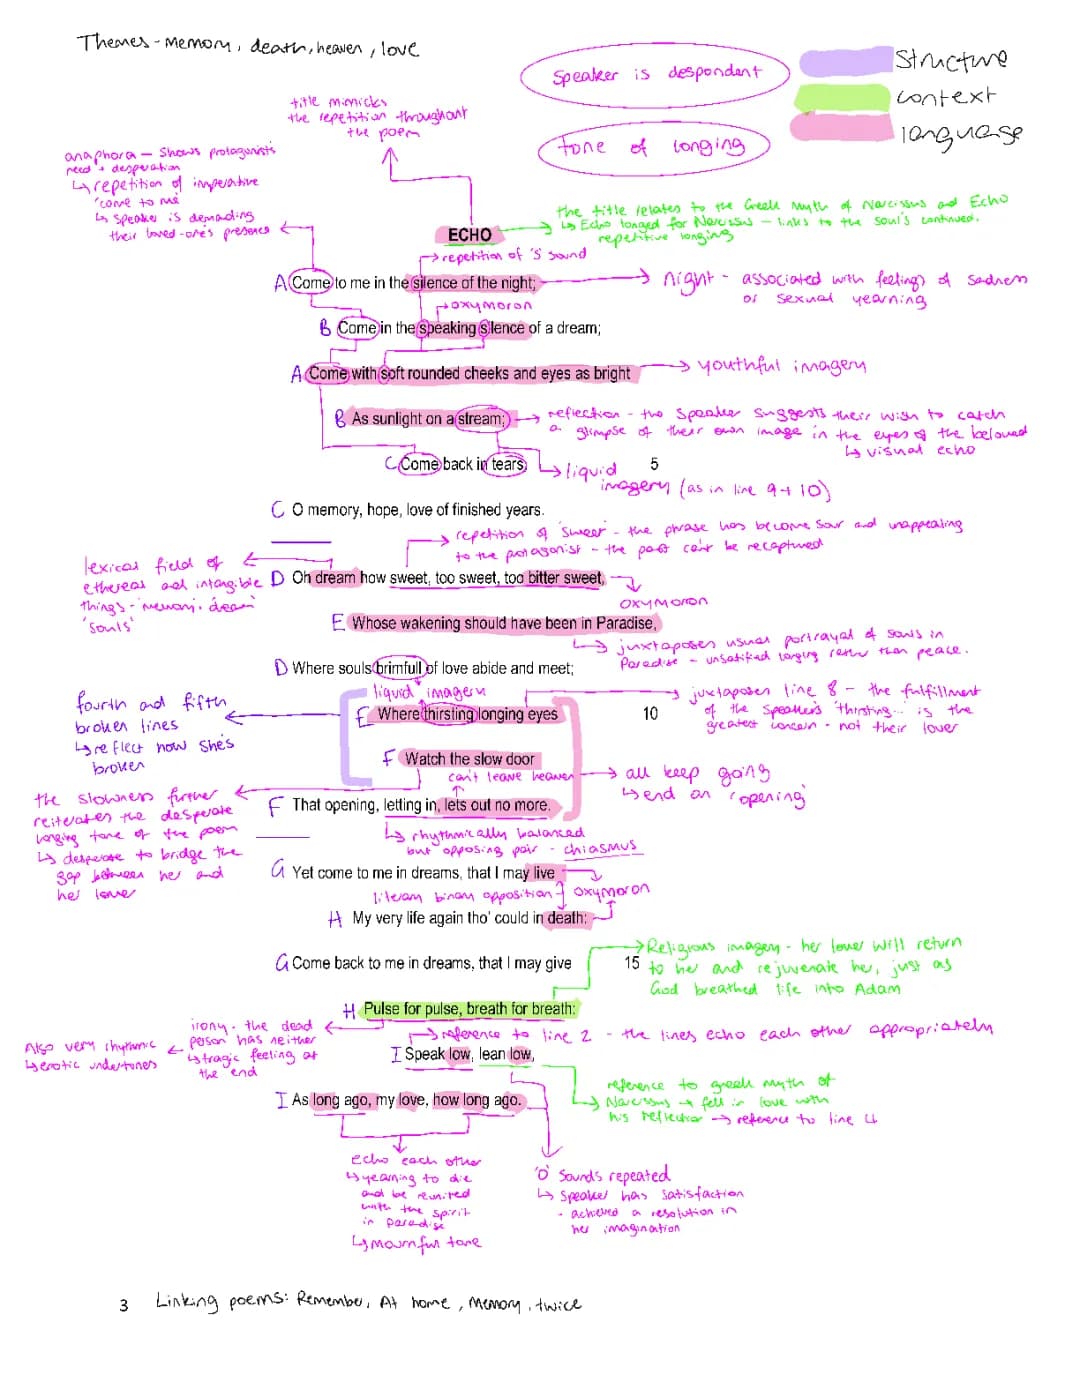 Themes - memory, death, heaven, love
Speaker is despondent
tone of longing
structure
context
language
title mimicks
the repetition throughout
the poem
anaphora - shows protagonists
need + desperation
↳ repetition of imperative
'come to me'
↳ speaker is demanding
their loved-one's presence
ECHO
the title relates to the Greek myth of Narcissus and Echo
↳ Echo longed for Narcissus - links to the soul's continued,
repetitive longing
repetition of 's' sound
A Come to me in the silence of the night;
night - associated with feelings of sadness
or sexual yearning
oxymoron
B Come in the speaking silence of a dream;
A Come with soft rounded cheeks and eyes as bright
youthful imagery
B As sunlight on a stream;
reflection - the speaker suggests their wish to catch
a glimpse of their own image in the eyes of the beloved
↳ visual echo
C Come back in tears, 5
↳ liquid
imagery (as in line 9 + 10)
C O memory, hope, love of finished years.
repetition of 'sweet' - the phrase has become sour and unappealing
to the protagonist - the past can't be recaptured
lexical field of
ethereal and intangible
things - 'memory, dream'
'souls'
D Oh dream how sweet, too sweet, too bitter sweet,
oxymoron
E Whose wakening should have been in Paradise,
↳ juxtaposes usual portrayal of souls in
Paradise - unsatisfied longing rather than peace.
D Where souls brimfull of love abide and meet;
liquid imagery
fourth and fifth
broken lines
↳ reflect how she's
broken
E Where thirsting longing eyes 10
juxtaposes line 8 - the fulfillment
of the speaker's 'thirsting...' is the
greatest concern - not their lover
F Watch the slow door
can't leave heaven
all keep going
↳ end on 'opening'
the slowness further
reiterates the desperate
longing tone of the poem
↳ desperate to bridge the
gap between her and
her lover
F That opening, letting in, lets out no more.
↳ rhythmically balanced
but opposing pair - chiasmus
G Yet come to me in dreams, that I may live
literary binary opposition
oxymoron
H My very life again tho' could in death:
G Come back to me in dreams, that I may give 15
Religious imagery - her lover will return
to her and rejuvenate her, just as
God breathed life into Adam
H Pulse for pulse, breath for breath:
irony - the dead
person has neither
↳ tragic feeling at
the end
Also very rhythmic
↳ erotic undertones
reference to line 2 - the lines echo each other appropriately
I Speak low, lean low,
reference to greek myth of
Narcissus → fell in love with
his reflection → reference to line 4
I As long ago, my love, how long ago.
echo each other
↳ yearning to die
and be reunited
with the spirit
in paradise
↳ mournful tone
'O' sounds repeated
↳ speaker has satisfaction
- achieved a resolution in
her imagination
3 Linking poems: Remember, At home, Memory, twice